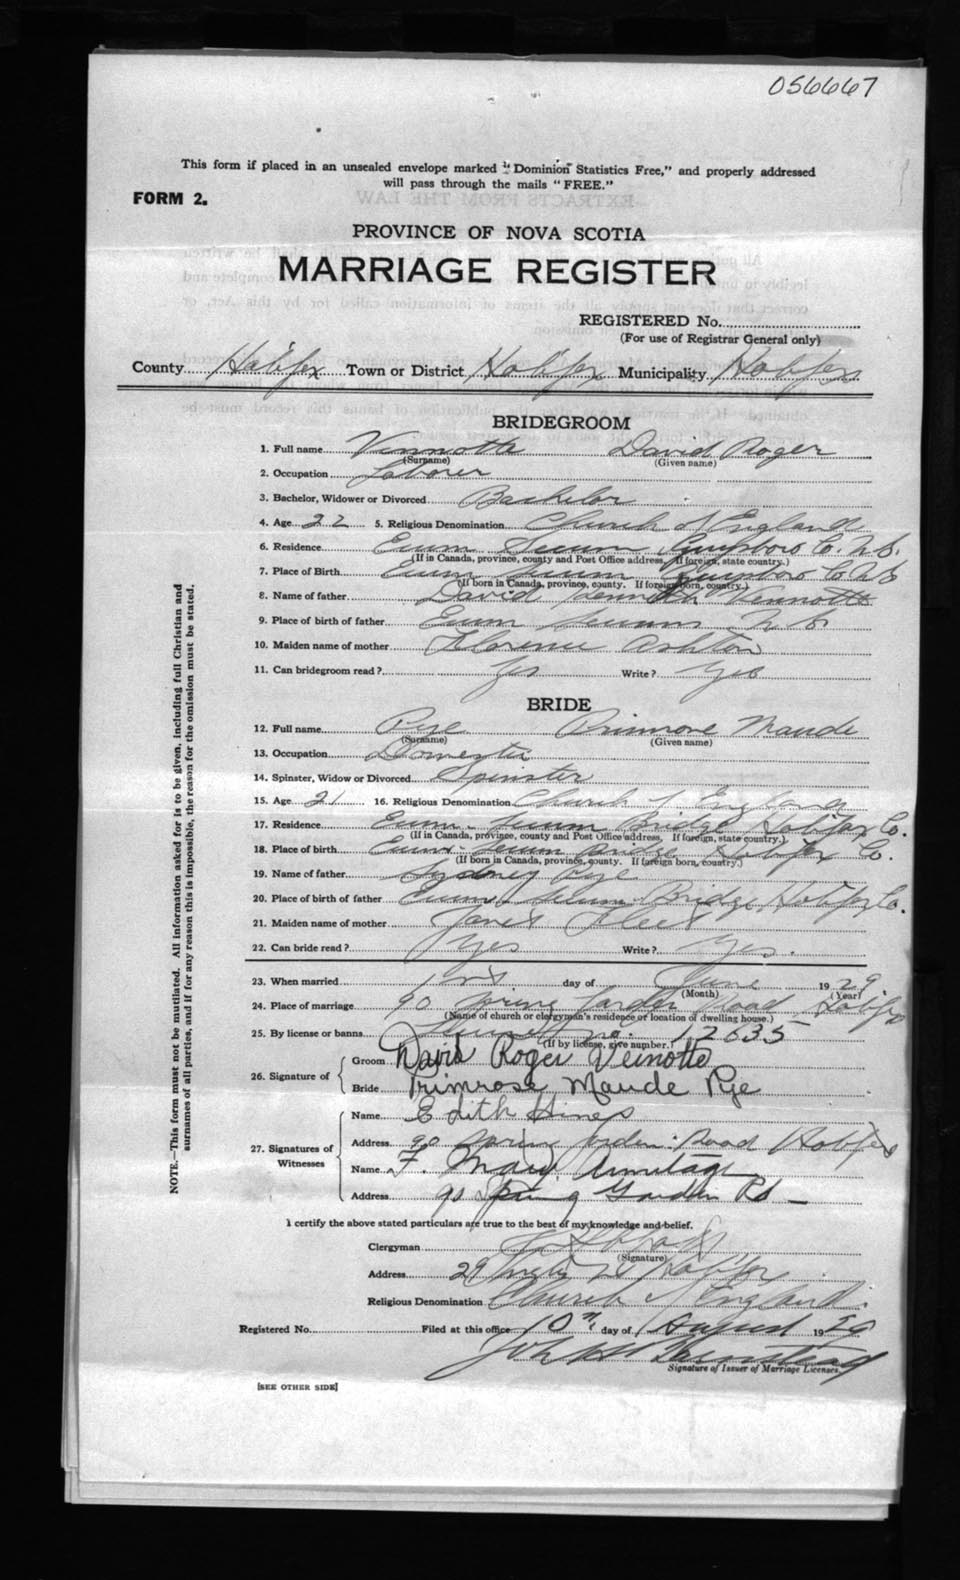 056667
This form if placed in an unsealed envelope marked "Dominion Statistics Free," and properly addressed
will pass through the mails "FREE."
FORM 2.
PROVINCE OF NOVA SCOTIA
MARRIAGE REGISTER
REGISTERED No.
(For use of Registrar General only)
County Halifax Town or District Halifax Municipality Halifax
BRIDEGROOM
1. Full name Veinotte David Roger
(Surname) (Given name)
2. Occupation Laborer
3. Bachelor, Widower or Divorced Bachelor
4. Age 22 5. Religious Denomination Church of England
6. Residence Ecum Secum Guysboro Co. N.S.
(If in Canada, province, county and Post Office address. If foreign, state country.)
7. Place of Birth Ecum Secum Guysboro Co N.S
(If born in Canada, province, county. If foreign born, country.)
8. Name of father David Kenneth Veinotte
9. Place of birth of father Ecum Secum N.S.
10. Maiden name of mother Florence Ashton
11. Can bridegroom read? Yes Write? Yes
BRIDE
12. Full name Pye Primrose Maude
(Surname) (Given name)
13. Occupation Domestic
14. Spinster, Widow or Divorced Spinster
15. Age 21 16. Religious Denomination Church of England
17. Residence Ecum Secum Bridge Halifax Co.
(If in Canada, province, county and Post Office address. If foreign, state country.)
18. Place of birth Ecum Secum Bridge Halifax Co.
(If born in Canada, province, county. If foreign born, country.)
19. Name of father Sydney Pye
20. Place of birth of father Ecum Secum Bridge, Halifax Co.
21. Maiden name of mother Janet
22. Can bride read? Yes Write? Yes.
23. When married day of June 1929
(Month) (Year)
24. Place of marriage 90 Spring Garden Road Halifax
(Name of church or clergyman's residence or location of dwelling house.)
25. By license or banns License no. 12635
(If by license, give number.)
26. Signature of
Groom David Roger Veinotte
Bride Primrose Maude Pye
27. Signatures of Witnesses
Name Edith Hines
Address 90 Spring Garden Road Halifax
Name F. Mary Armitage
Address 90 Spring Garden Rd
I certify the above stated particulars are true to the best of my knowledge and belief.
Clergyman
(Signature)
Address 29 Halifax
Religious Denomination Church of England.
Registered No. Filed at this office 10th day of August 1929
Signature of Issuer of Marriage Licenses.
[SEE OTHER SIDE]
NOTE.—This form must not be mutilated. All information asked for is to be given, including full Christian and
surnames of all parties, and if for any reason this is impossible, the reason for the omission must be stated.